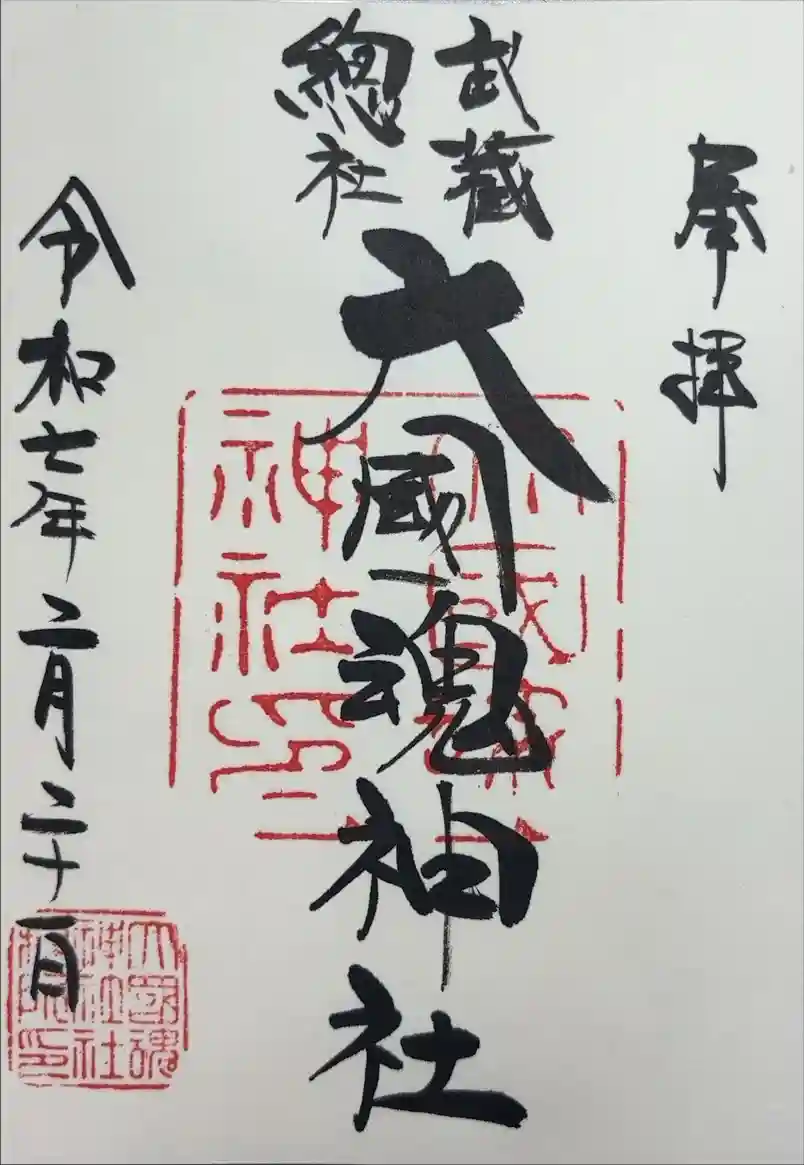 奉拝
武蔵
總社
大國魂神社
令和七年二月二十一日
神社印
大國魂
神社社
務所印